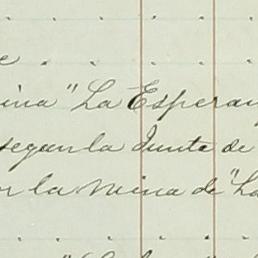 e
ina " La Esperan
segun la Junta de
or la mina de "La